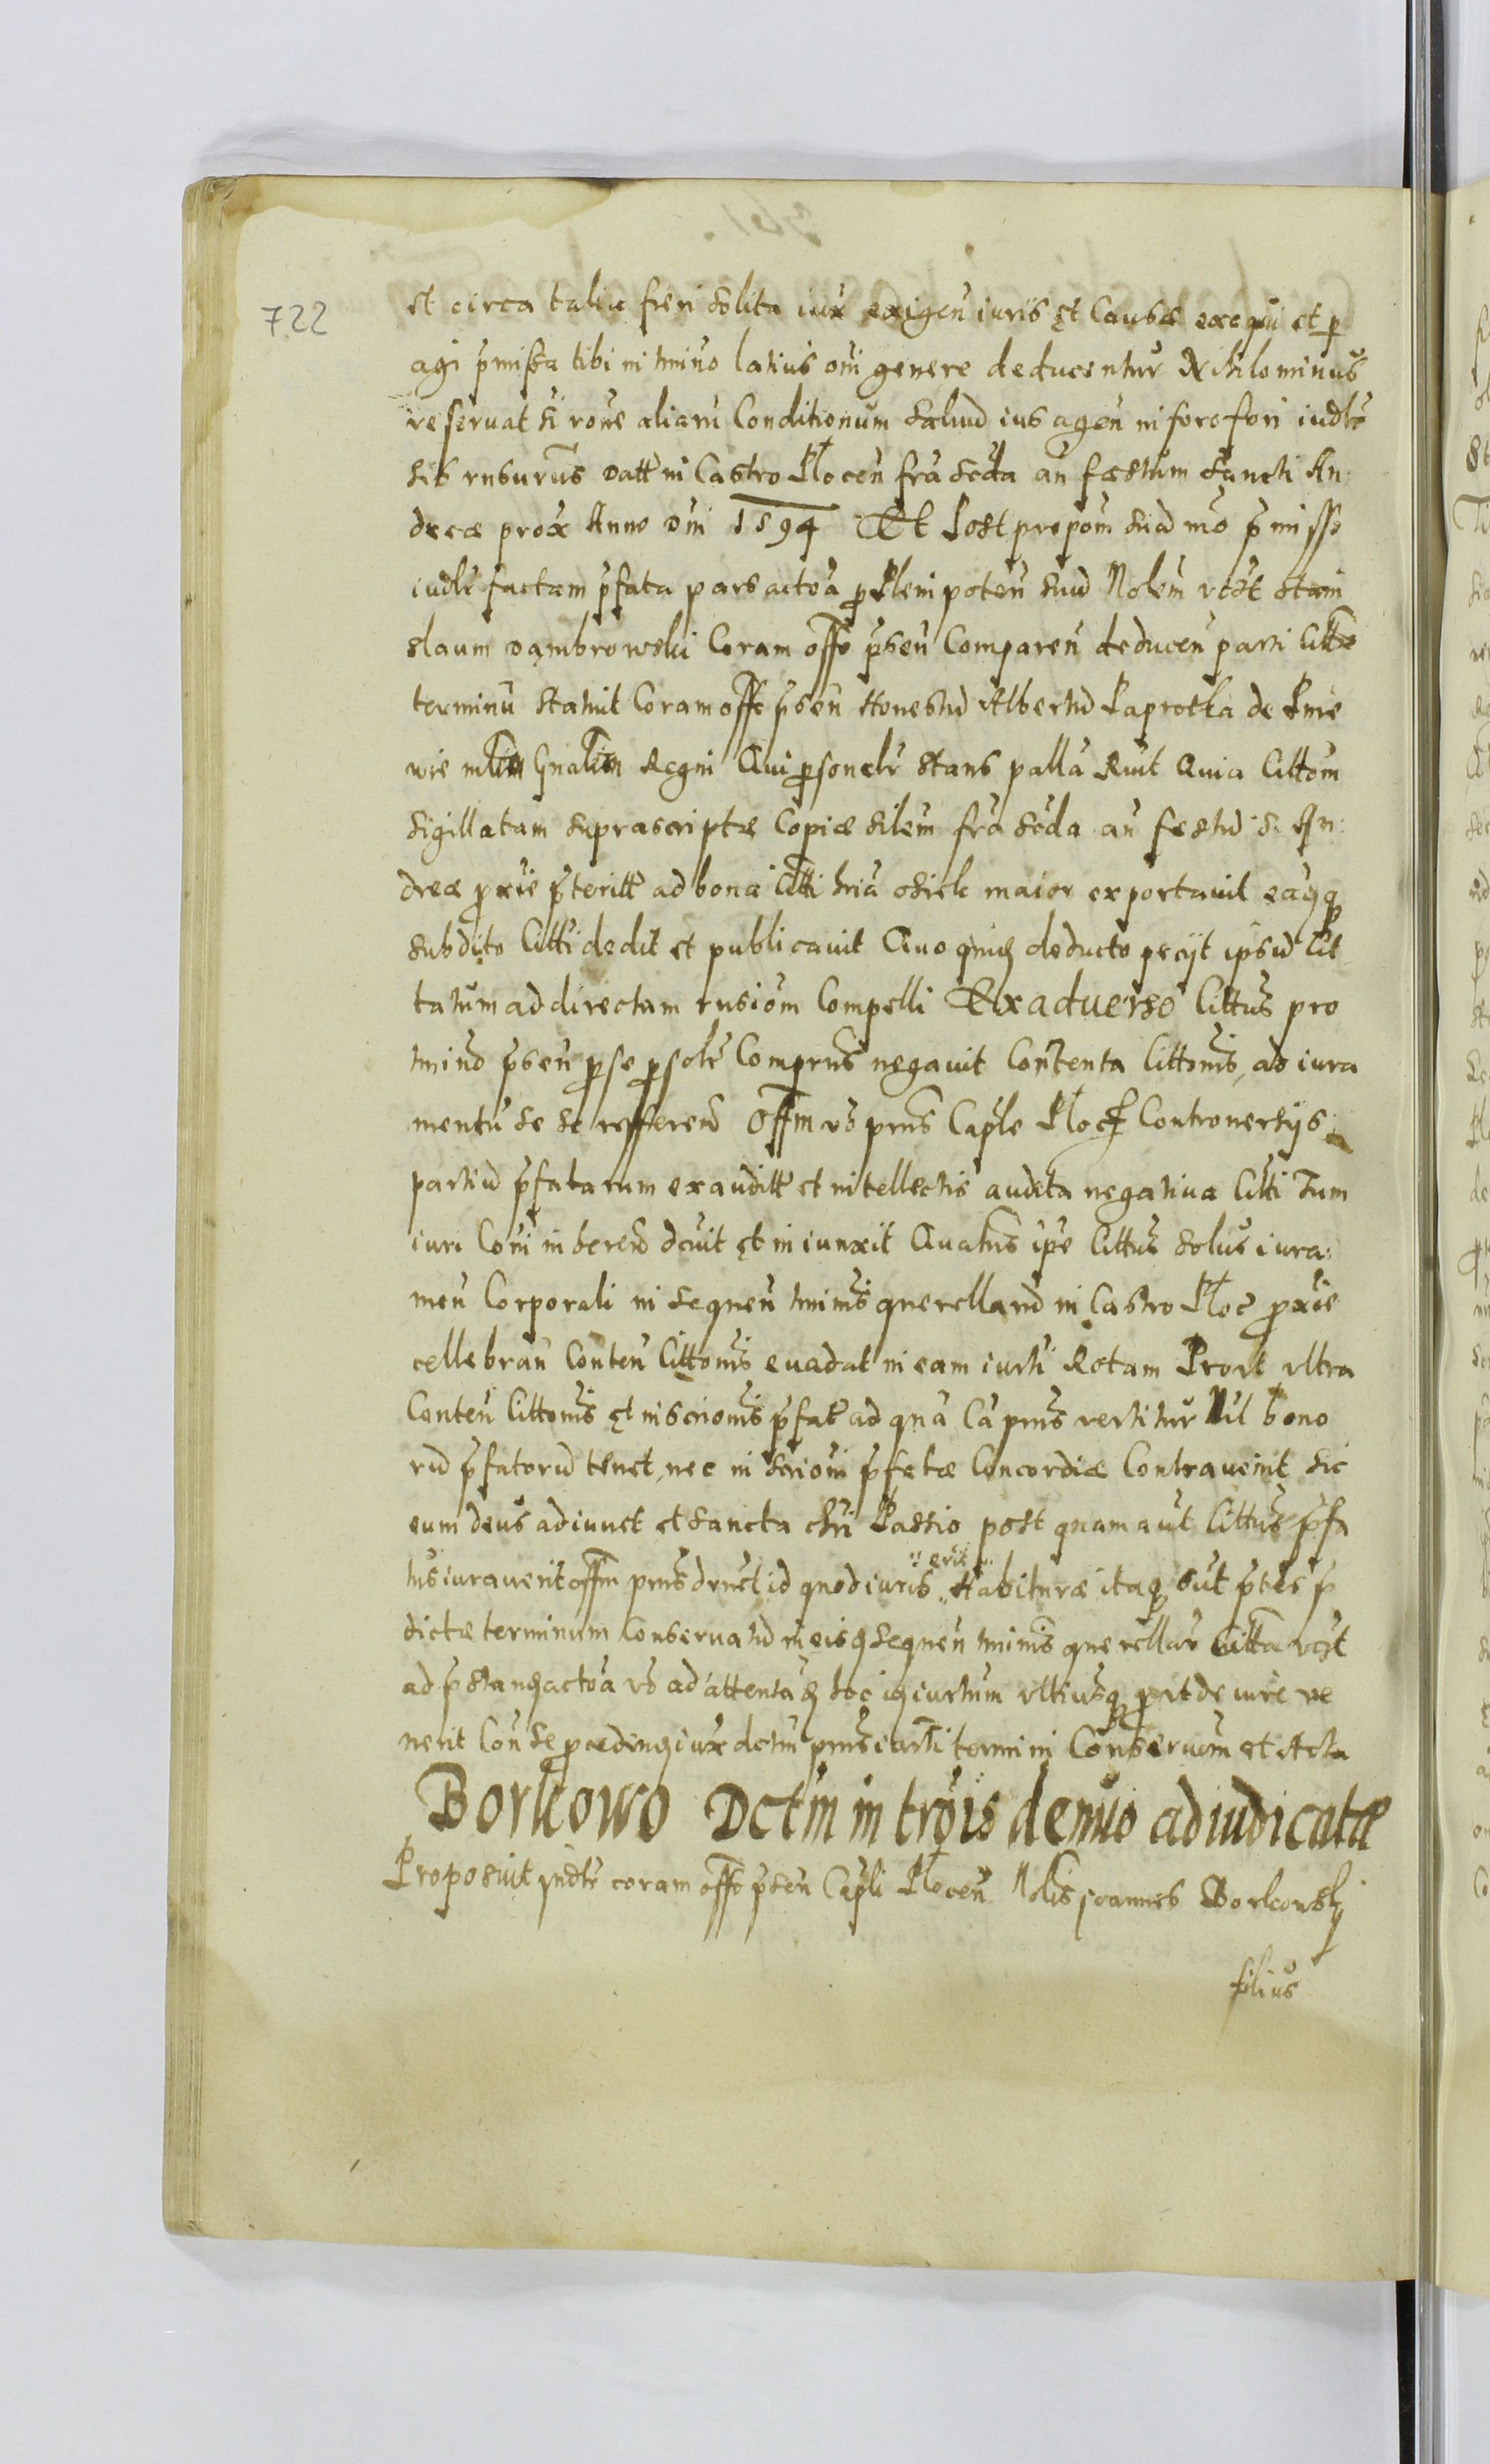 722
et circa talia fieri solita iux exigen iuris et Causæ exequi et p
agi pmissa tibi in tmino latius omi genere deducentur Nihilominus
reservat si rone aliaru Conditionum saluu ius agen in foro fori iudle
sib rusurus Datt in Castro Plocen fra scda an festum Sancti An
dreæ prox Anno Dni 1594 Et Post propom suã mo pmisso
iudlr factam pfata pars actoa p Plenipoten suu Nolem rost Stani
slaum Dąmbrowski Coram offo psen Comparen deducen parti Citte
terminu statuit Coram offo psen Honestu Albertu Paprotka de Pnie
wie mlem Gnalem Regni Qui psonalr stans palla Ruit Quia Cittom
sigillatam suprascriptæ Copiæ silem fra scda an festu S. An:
dreæ pxie pteritt ad bona Citti hria osiek maior exportavit eaqq
subdito Citti dedit et publicavit Quo quiq deducto peciit ipsu Cit
tatum ad directam rusiom Compelli Ex adverso Cittus pro
tmino psen p se psolr Comprns negavit Contenta Cittonis, ad iura
mentu se se refferen Offm vo prns Caple Ploc Controversijs
partiu pfatarum exauditt et intellectis audita negativa Citti Tum
iuri Coni inheren dcuit et iniunxit Quatns ipe Cittus solus iura:
men Corporali in sequen tminis querellaru in Castro Ploc pxie
cellebran Conten Cittonis evadat in eam iurti Rotam Prout ultra
Conten Cittonis et inscrionis pfat ad qua Ca prns vertitur Nil bono
ru pfatoru tenet, nec in scrioni pfatæ Concordiæ Contravenit sic
eum deus adiuuet et sancta Chri Passio post quam aut Cittus pfa
tus iuraverit offm prns druet id quod iuris erit Habituræ itaq sut ptes p
dictæ terminum Conservatu in eisq sequen tminis querellar Citta rost
ad pstanq actoa vo ad attentaq hoc iq iurtum ultiusq put de iure ve
nerit Con se pcedenq iux dctm prns iurti termini Conservom et Acta
Borkowo Dctm in trois denuo adiudicatæ
Proposuit yudlr coram offo psen Capli Plocen Nolis joannes Borkowsky
filius